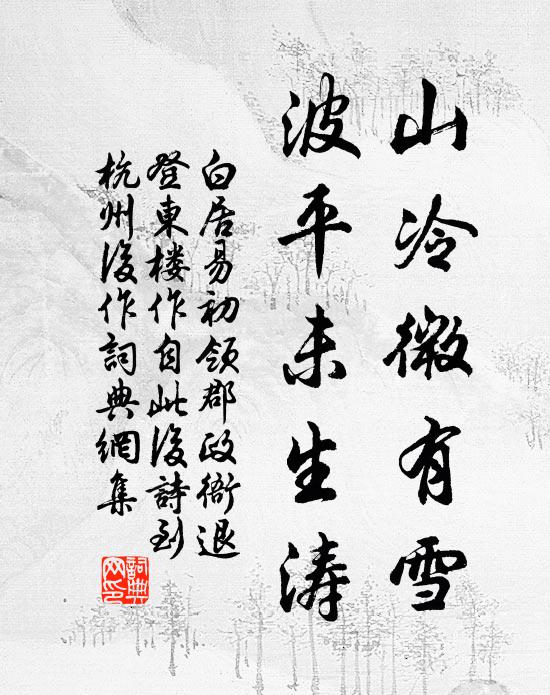 山冷微有雪
波平未生涛
白居易初领郡政衙退
登東楼作自此後詩到
杭州後作詞典網集
詞典
网印